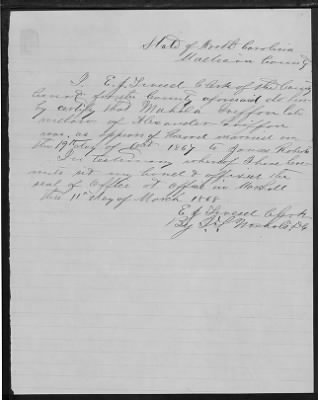 State of North Carolina
Madison County
I E. J. Clerk of the County
Court for the County aforesaid do here
by certify that Mahala late
widow of Alexander
was as appears of Record married on
the 19th day of Oct 1867 to James Roberts
In testimony whereof I have here
unto set my hand & affixed the
seal of Office at Office in Marshall
this 11th day of March 1868
E J Clerk
By